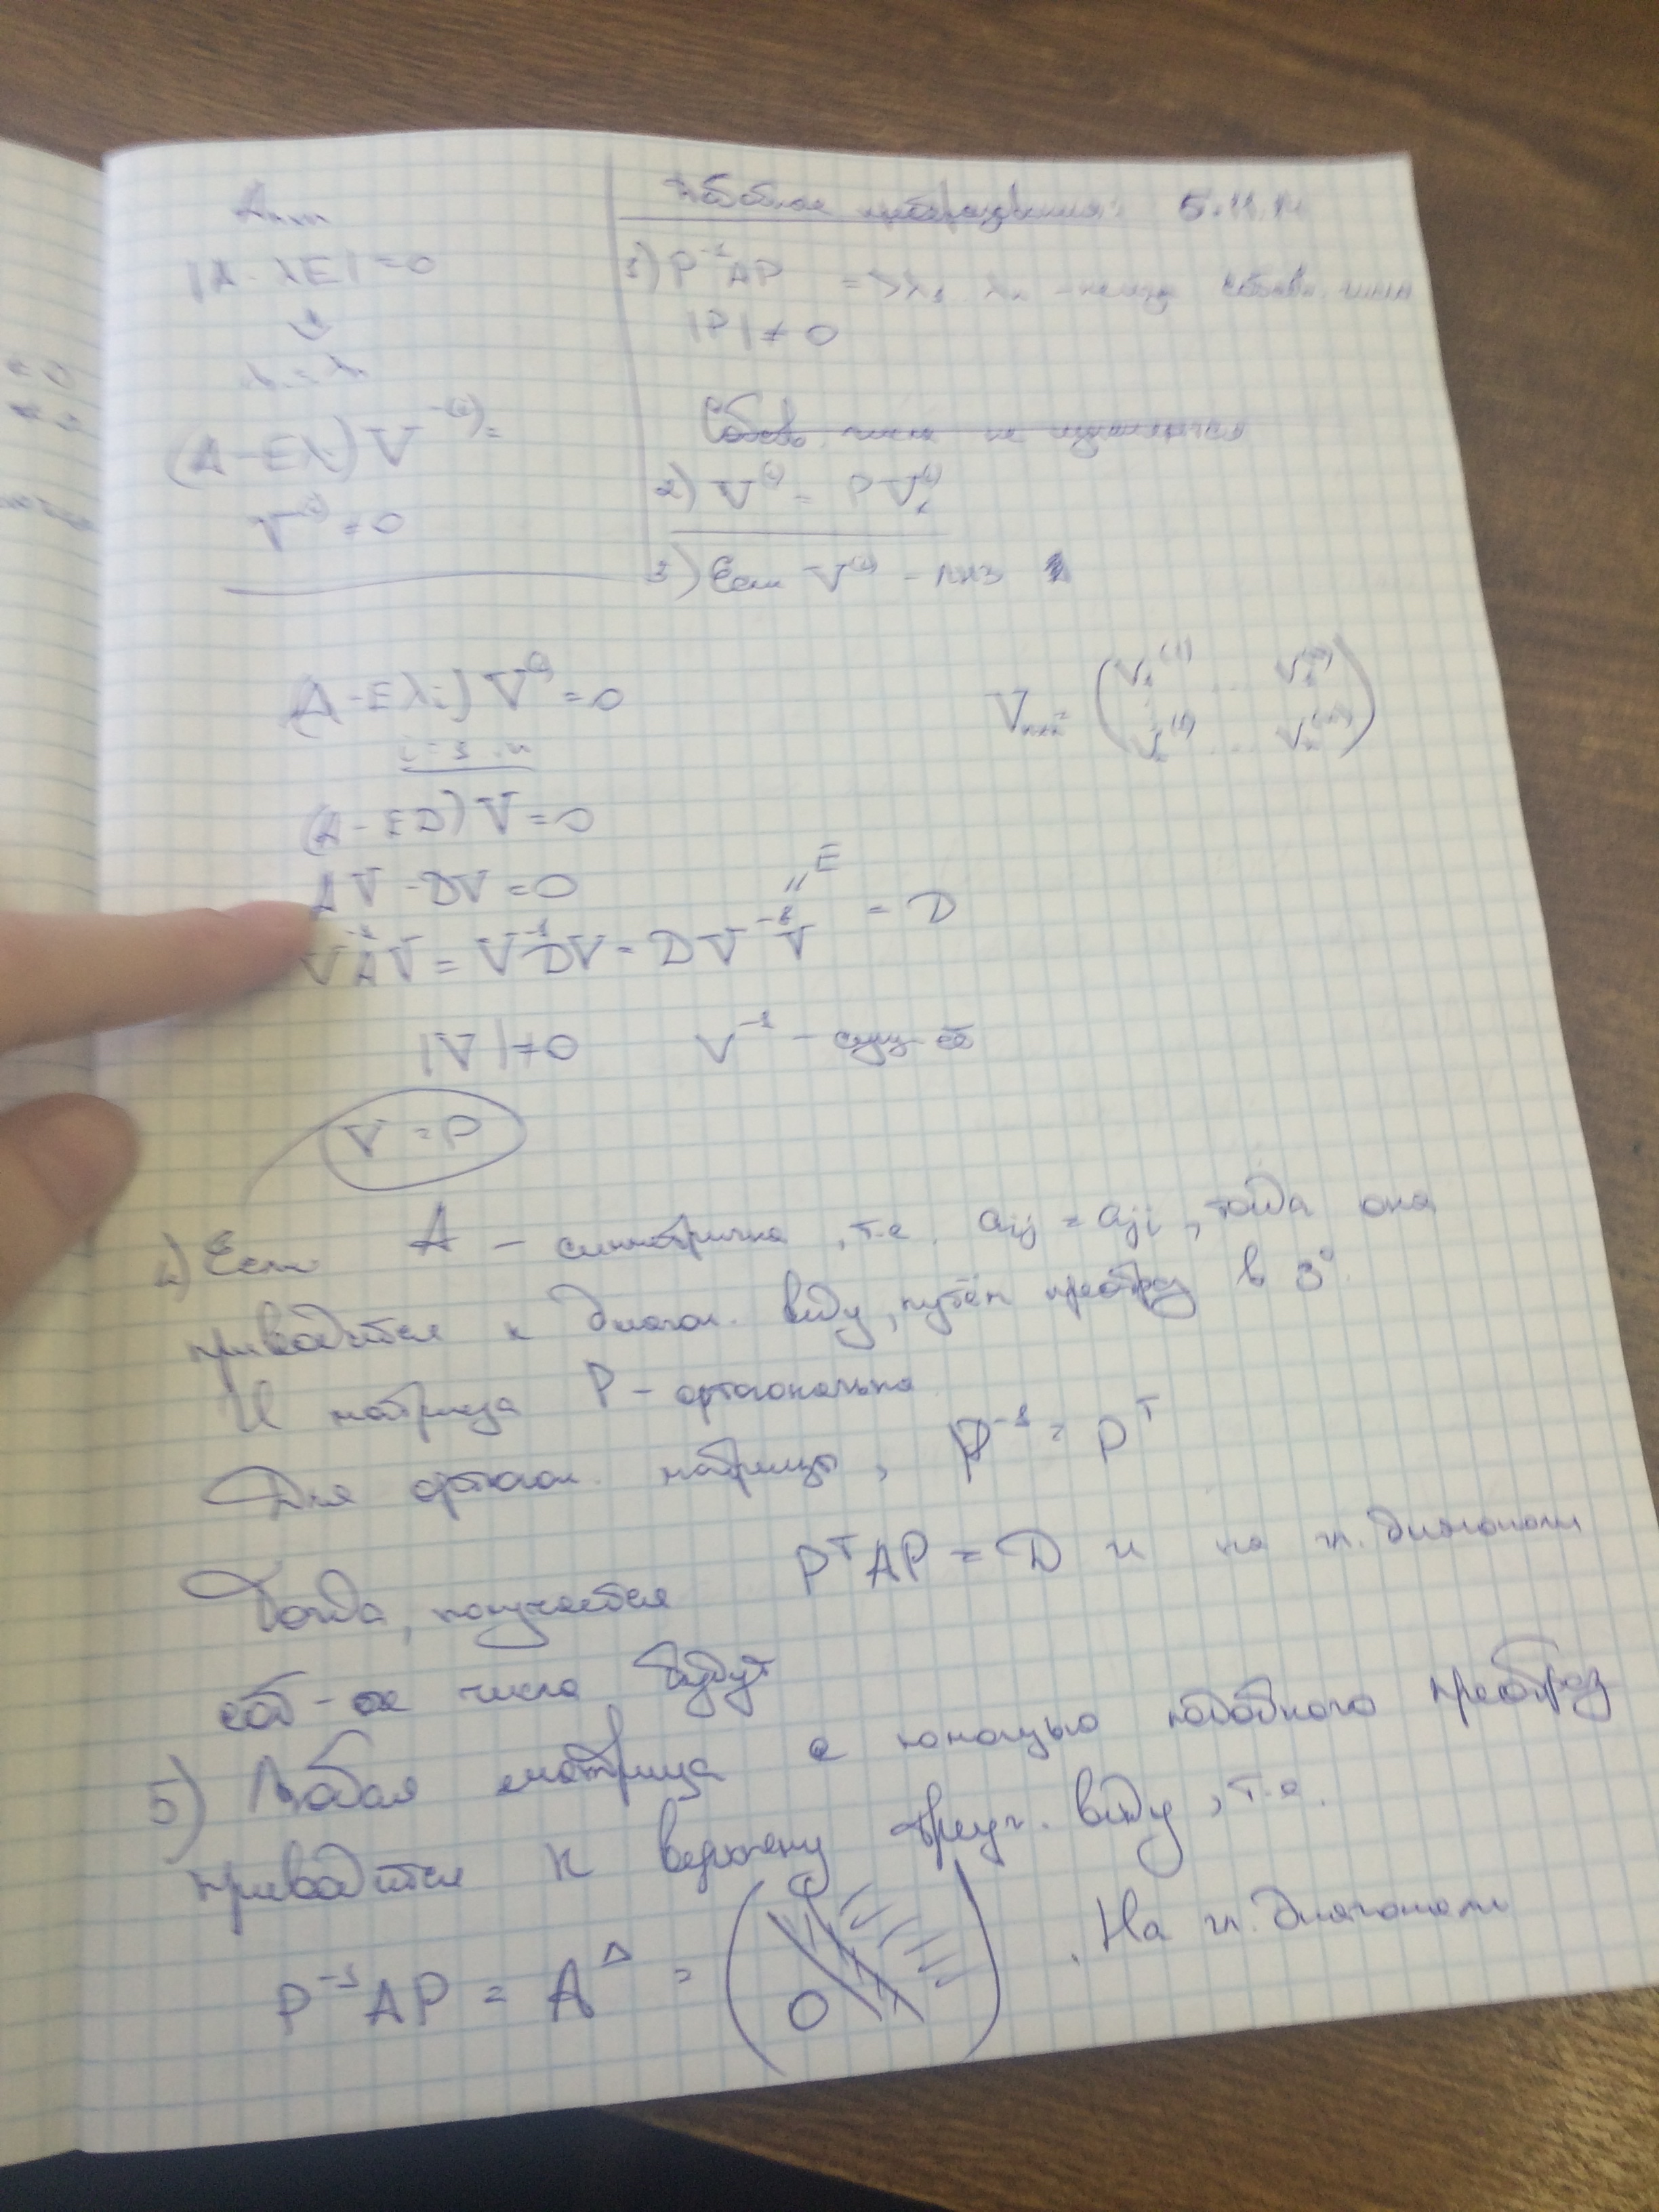 A n×n
|A - λE| = 0
(A - Eλi) V⁽ⁱ⁾ =
V⁽ⁱ⁾ = 0
Подобное преобразование: 5.11.14
1) P⁻¹AP => λ1 λn - собств. числа
|P| ≠ 0
Собств. числа не изменяются
2) V⁽ⁱ⁾ = PV⁽ⁱ⁾
3) Если V⁽ⁱ⁾ - ЛНЗ
(A - Eλi) V⁽ⁱ⁾ = 0
i = 1..n
V n×n = (V₁⁽¹⁾ ... V₁⁽ⁿ⁾
Vₙ⁽¹⁾ ... Vₙ⁽ⁿ⁾)
(A - ED) V = 0
AV - DV = 0
V⁻¹AV = V⁻¹DV = DV⁻¹V = D
"E
|V| ≠ 0 V⁻¹ - сущ-ет
V = P
4) Если A - симметрична, т.е. aij = aji, тогда она
приводится к диагон. виду, путём преобраз в 3°.
И матрица P - ортогональна
Для ортогон. матрицы, P⁻¹ = Pᵀ
Тогда, получается PᵀAP = D и на гл. диагонали
соб-ые числа будут
5) Любая матрица с помощью подобного преобраз
приводится к верхнему треуг. виду, т.е.
P⁻¹AP = A^Δ = (0). На гл. диагонали